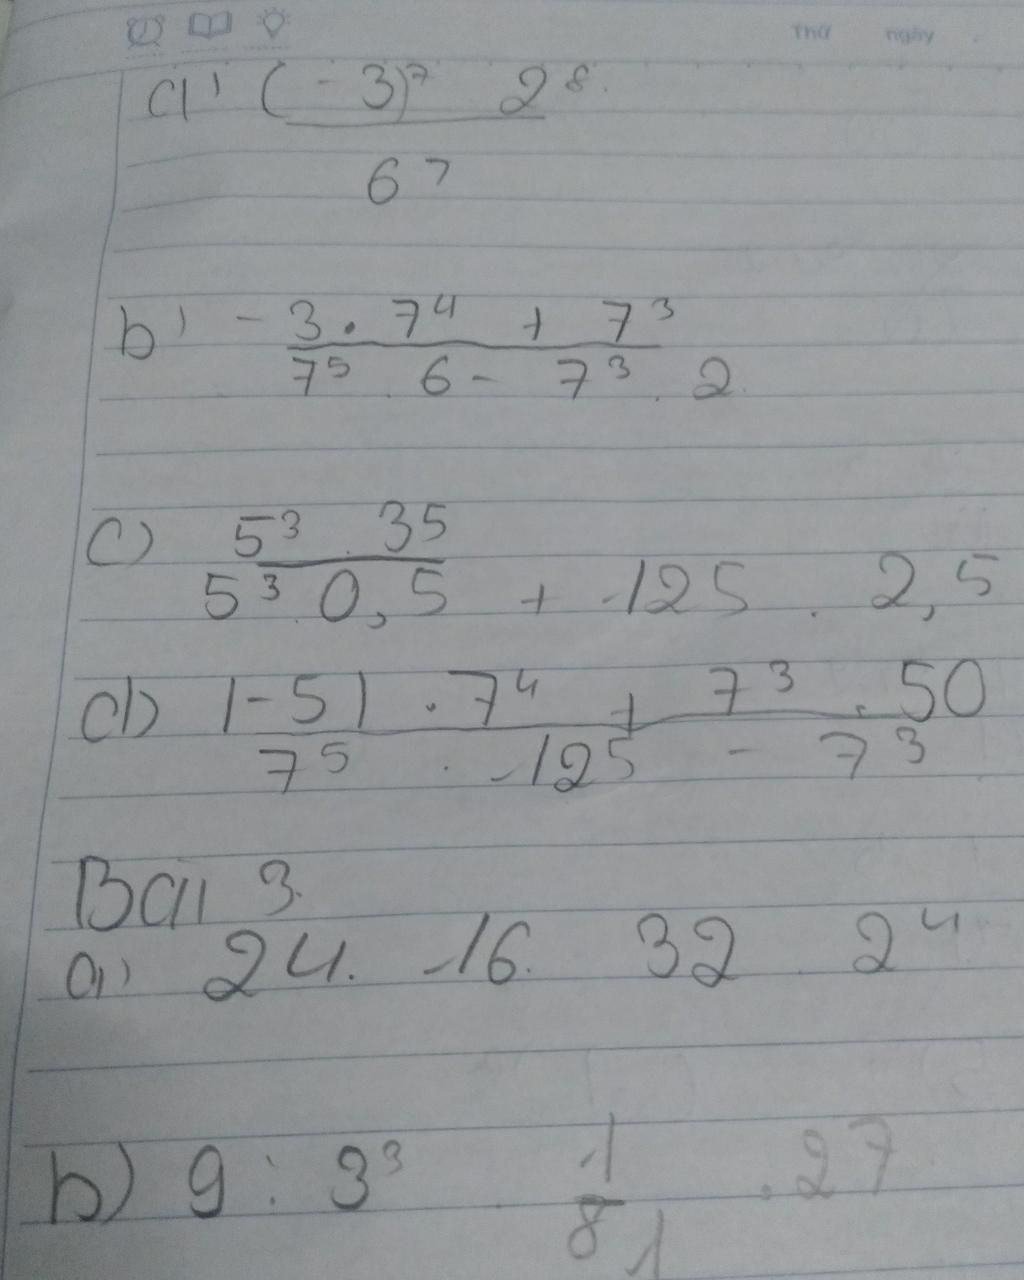 Thứ ngày .
a) (-3)⁷ 2⁸.
6⁷
b) - 3 . 7⁴ + 7³
7⁵ . 6 - 7³ . 2
c) 5³ . 35
5³ . 0,5 + 125 . 2,5
d) |-5| . 7⁴ + 7³ . 50
7⁵ . 125 - 7³
Bài 3.
a) 24. 16. 32 . 2⁴
b) 9 : 3³ . 1 . 27
81